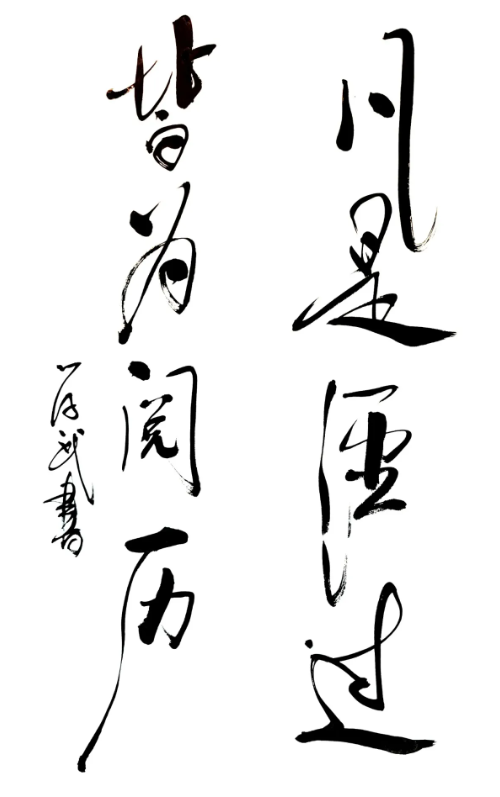 凡是经过
皆为阅历
书